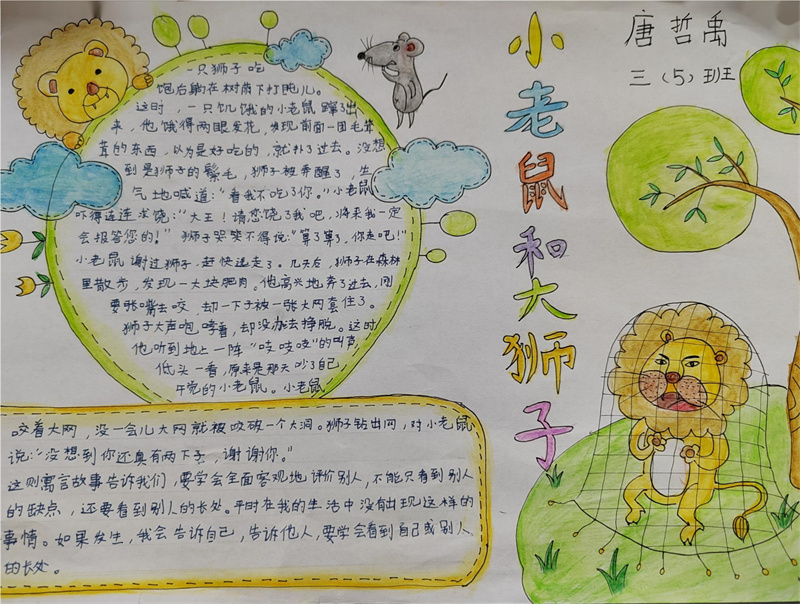 小老鼠和大狮子
唐哲禹
三（5）班
一只狮子吃
饱后躺在树荫下打盹儿。
这时，一只饥饿的小老鼠蹿出
来，他饿得两眼发花，发现前面一团毛茸
茸的东西，以为是好吃的，就扑了过去。没想
到是狮子的鬃毛，狮子被弄醒了，生
气地喊道：“看我不吃了你。”小老鼠
吓得连连求饶：“大王！请您饶了我吧，将来我一定
会报答您的！”狮子哭笑不得说：“算了算了，你走吧！”
小老鼠谢过狮子，赶快逃走了。几天后，狮子在森林
里散步，发现一大块肥肉。他高兴地奔了过去，刚
要张嘴去咬，却一下子被一张大网套住了。
狮子大声咆哮着，却没办法挣脱。这时
他听到地上一阵“吱吱吱”的叫声，
低头一看，原来是那天吵了自己
午觉的小老鼠。小老鼠
咬着大网，没一会儿大网就被咬破一个大洞。狮子钻出网，对小老鼠
说：“没想到你还真有两下子，谢谢你。”
这则寓言故事告诉我们，要学会全面客观地评价别人，不能只看到别人
的缺点，还要看到别人的长处。平时在我的生活中没有出现这样的
事情。如果发生，我会告诉自己，告诉他人，要学会看到自己或别人
的长处。